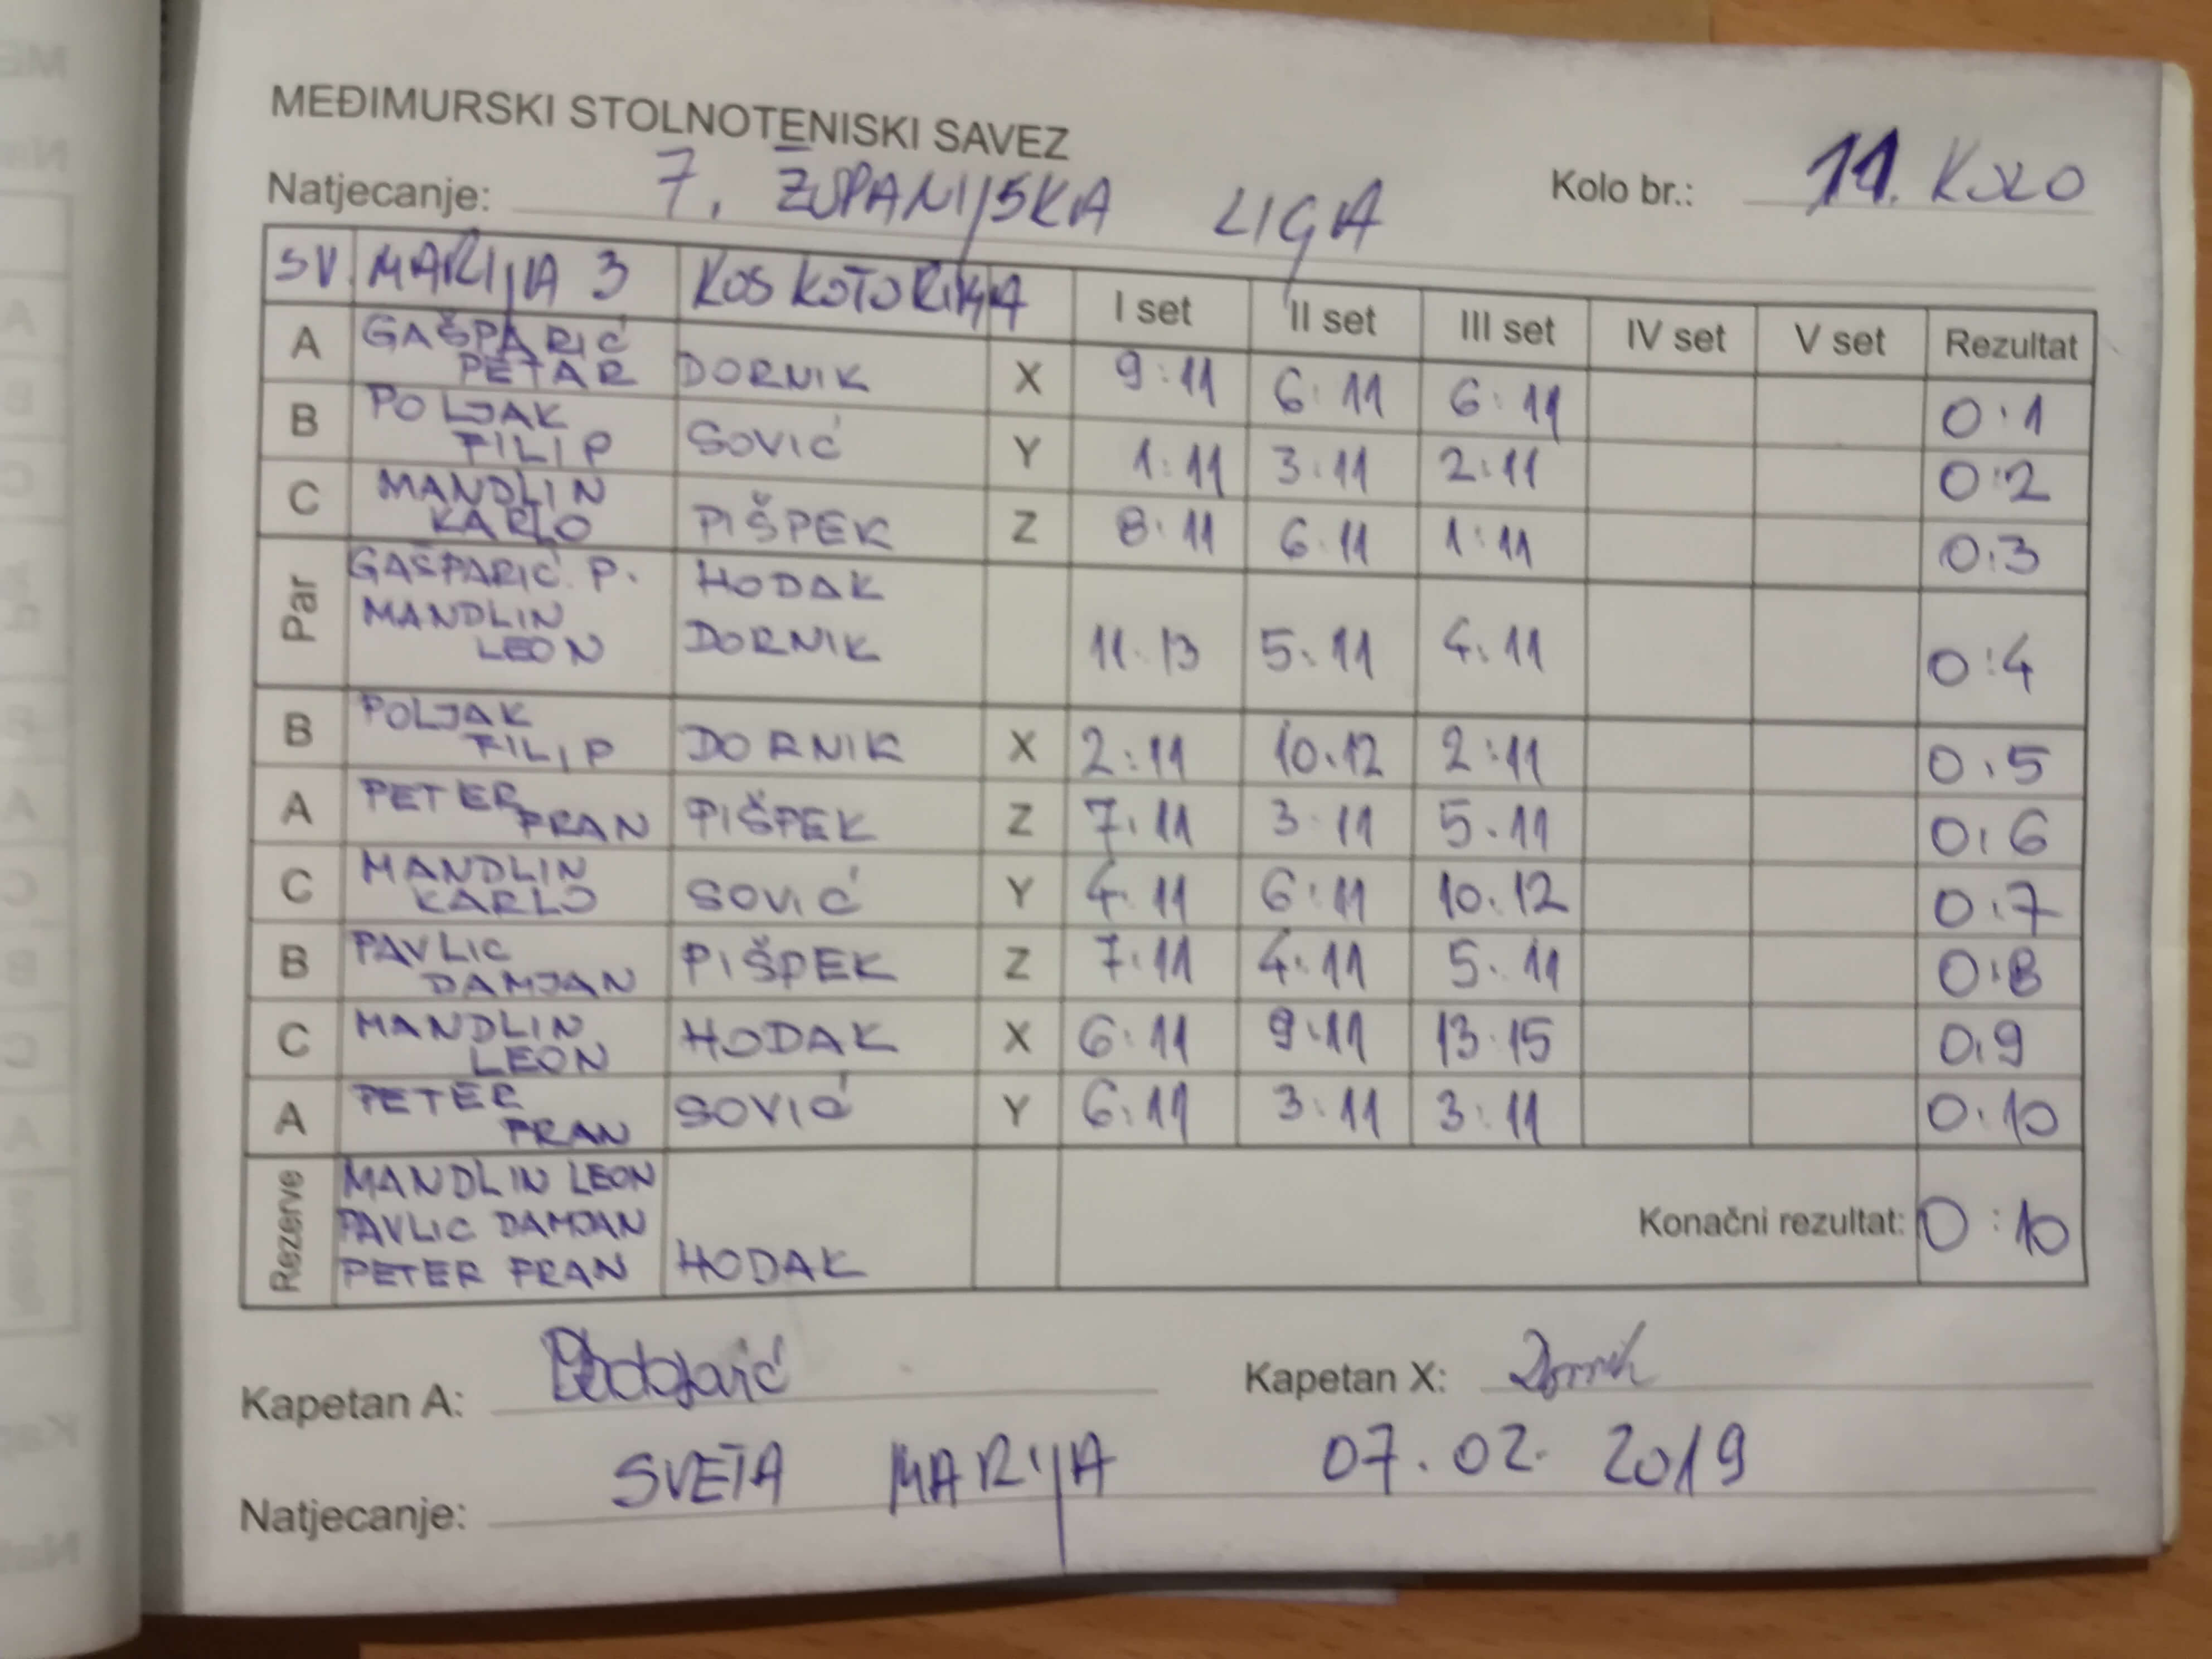 MEĐIMURSKI STOLNOTENISKI SAVEZ
Natjecanje: 7. ŽUPANIJSKA LIGA Kolo br.: 11. KOLO
SV. MARIJA 3 KOS KOTORIBA I set II set III set IV set V set Rezultat
A GAŠPARIĆ PETAR DORNIK X 9:11 6:11 6:11 0:1
B POLJAK FILIP SOVIĆ Y 1:11 3:11 2:11 0:2
C MANDLIN KARLO PIŠPEK Z 8:11 6:11 1:11 0:3
Par GAŠPARIĆ P. HODAK
MANDLIN LEON DORNIK 11:13 5:11 4:11 0:4
B POLJAK FILIP DORNIK X 2:11 10:12 2:11 0:5
A PETER FRAN PIŠPEK Z 7:11 3:11 5:11 0:6
C MANDLIN KARLO SOVIĆ Y 4:11 6:11 10:12 0:7
B PAVLIC DAMJAN PIŠPEK Z 7:11 4:11 5:11 0:8
C MANDLIN LEON HODAK X 6:11 9:11 13:15 0:9
A PETER FRAN SOVIĆ Y 6:11 3:11 3:11 0:10
Rezerve MANDLIN LEON
PAVLIC DAMJAN
PETER FRAN HODAK
Konačni rezultat: 0:10
Kapetan A: Kapetan X: Dornik
Natjecanje: SVETA MARIJA 07.02.2019